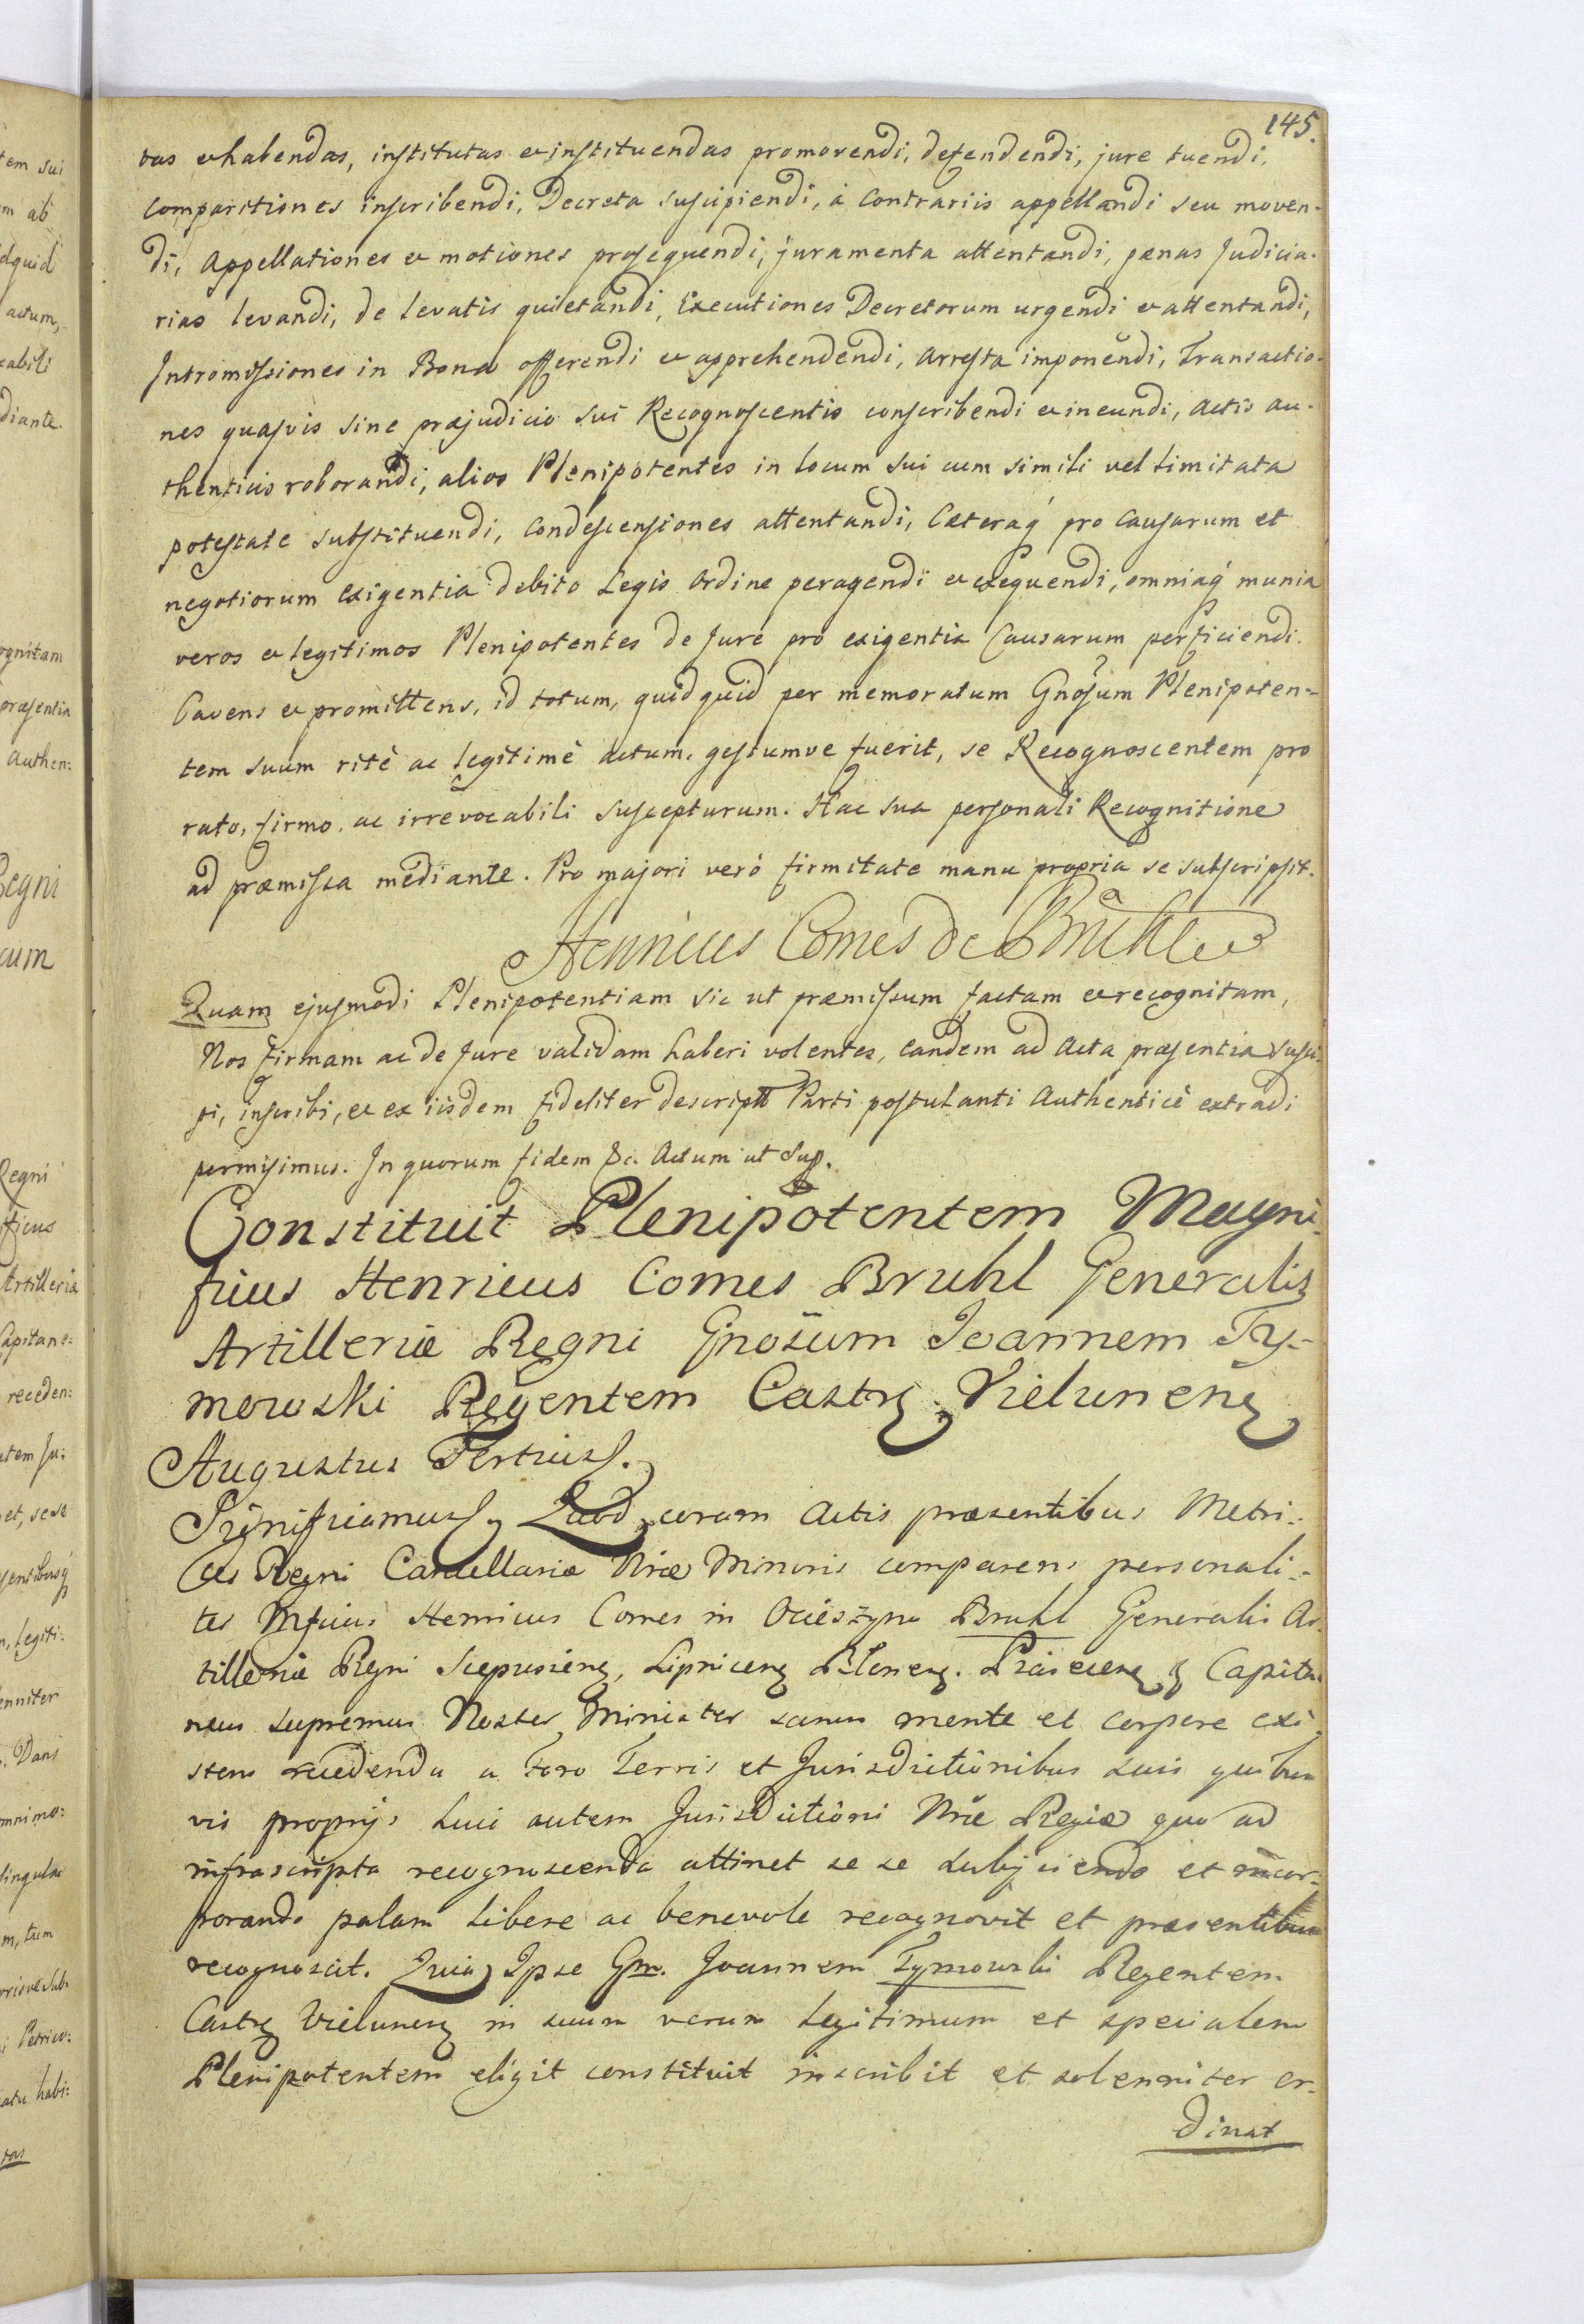 145.
tas et habendas, institutas et instituendas promovendi, defendendi, jure tuendi,
comparitiones inscribendi, Decreta suscipiendi, à Contrariis appellandi seu moven-
di, Appellationes et motiones prosequendi, juramenta attentandi, pænas Judicia-
rias levandi, de levatis quietandi, Executiones Decretorum urgendi et attentandi,
Intromissiones in Bona offerendi et apprehendendi, Arresta imponendi, Transactio-
nes quasvis sine præjudicio sui Recognoscentis conscribendi et ineundi, Actis au-
thenticis roborandi, alios Plenipotentes in locum sui cum simili vel limitata
potestate substituendi, Condescensiones attentandi, Cæteraq́ pro Causarum et
negotiorum exigentia debito Legis Ordine peragendi et exequendi, omniaq́ munia
veros et legitimos Plenipotentes de Jure pro exigentia Causarum perficiendi.
Cavens et promittens, id totum, quidquid per memoratum Gnosum Plenipoten-
tem suum ritè ac legitimè actum, gestumve fuerit, se Recognoscentem pro
rato, firmo, ac irrevocabili suscepturum. Hac sua personali Recognitione
ad præmissa mediante. Pro majori verò firmitate manu propria se subscripsit.
Henricus Comes de Brühl
Quam ejusmodi Plenipotentiam sic ut præmissum factam et recognitam,
Nos firmam ac de Jure validam haberi volentes, eandem ad Acta præsentia susci-
pi, inscribi, et ex iisdem fideliter descriptt Parti postulanti Authenticè extradi
permisimus. In quorum fidem &c. Actum ut Sup.
Constituit Plenipotentem Magni-
ficus Henricus Comes Bruhl Generalis
Artilleriæ Regni Gnosum Joannem Ty-
mowski Regentem Castrs. Vielunens
Augustus Tertius.
Significamus. Quod coram Actis præsentibus Metri-
ces Regni Cancellariæ Nræ Minoris comparens personali-
ter Mficus Henricus Comes in Ocieszyno Bruhl Generalis Ar-
tilleriæ Regni Scepusiens, Lipnicens Blonens. Capita-
neus supremus Noster Minister sanus mente et corpore exi-
stens recedendo a Foro Terris et Jurisdictionibus suis quibus-
vis proprijs huic autem Jurisdictioni Nræ Regiæ quo ad
infrascripta recognoscenda attinet se se subjiciendo et incor-
porando palam libere ac benevole recognovit et præsentibus
recognoscit. Quia Ipse Gm. Joannem Tymowski Regentem
Castrs Vielunens in suum verum legitimum et specialem
Plenipotentem eligit constituit inscribit et solenniter or-
dinat